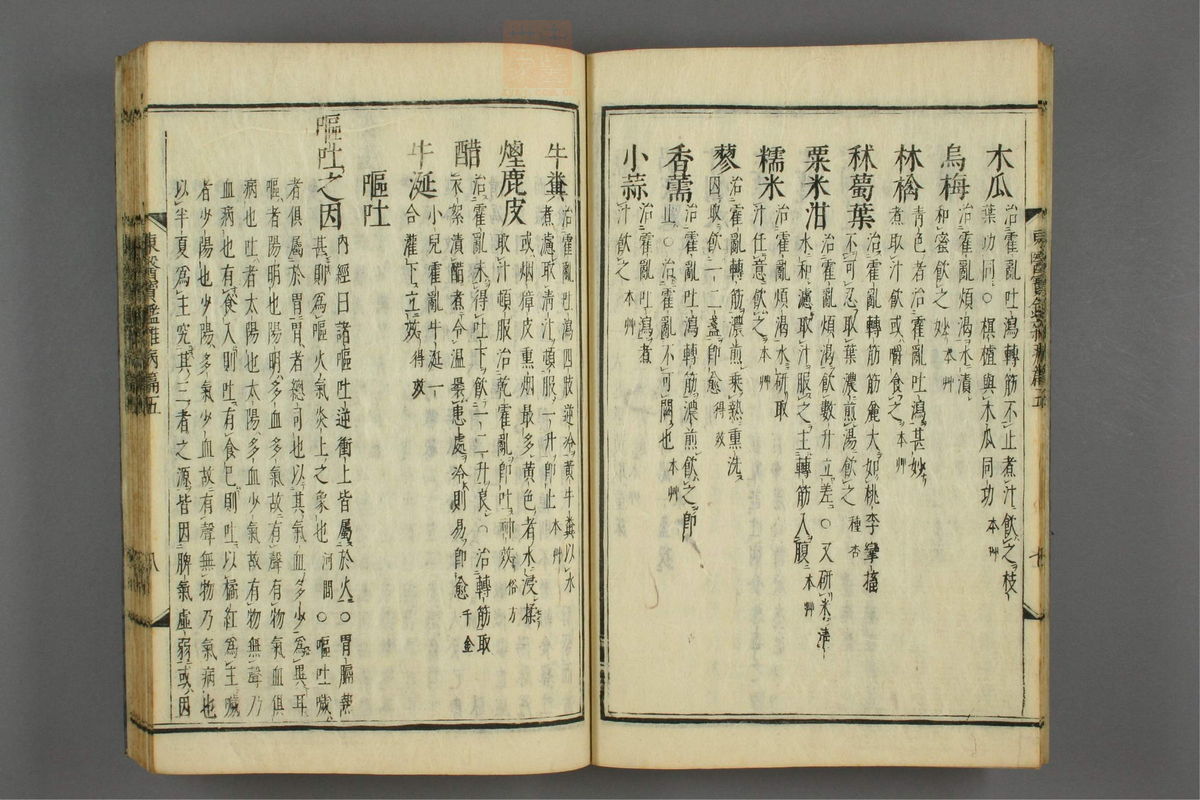 木瓜 治霍亂吐瀉轉筋不止煮汁飲之枝
葉功同○榠樝與木瓜同功 本艸
烏梅 治霍亂煩渴水漬
和蜜飲之妙 本艸
林檎 青色者治霍亂吐瀉甚妙
煮取汁飲或嚼食之 本艸
秫薥葉 治霍亂轉筋筋麄大如桃李攣搐
不可忍取葉濃煎湯飲之 種杏
粟米泔 治霍亂煩渴飲數升立差○又研米清
水和濾取汁服之主轉筋入腹 本艸
糯米 治霍亂煩渴水研取
汁任意飲之 本艸
蓼 治霍亂轉筋濃煎乘熱熏洗
因取飲一二盞即愈 得效
香薷 治霍亂吐瀉轉筋濃煎飲之即
止○治霍亂不可闕也 本艸
小蒜 治霍亂吐瀉煮
汁飲之 本艸
牛糞 治霍亂吐瀉四肢逆冷黃牛糞以水
煮濾取清汁頓服一升即止 本艸
煙鹿皮 或烟獐皮熏烟最多黃色者水浸揉
取汁頓服治乾霍亂即吐瀉效 俗方
醋 治霍亂未得吐下飲一二升良○治轉筋取
衣絮漬醋煮令溫裹患處冷則易即愈 千金
牛涎 小兒霍亂牛涎一
合灌下立效 得效
嘔吐
嘔吐之因 內經曰諸嘔吐逆衝上皆屬於火○胃膈熱
甚則為嘔火氣炎上之象也 河間○嘔吐噦
者俱屬於胃胃者總司也以其氣血多少為異耳
嘔者陽明也陽明多血多氣故有聲有物氣血俱
病也吐者太陽也太陽多血少氣故有物無聲乃
血病也有食入則吐有食已則吐以橘紅為主噦
者少陽也少陽多氣少血故有聲無物乃氣病也
以半夏為主究其三者之源皆因脾氣虛弱或因
東醫寶鑑雜病篇五
八